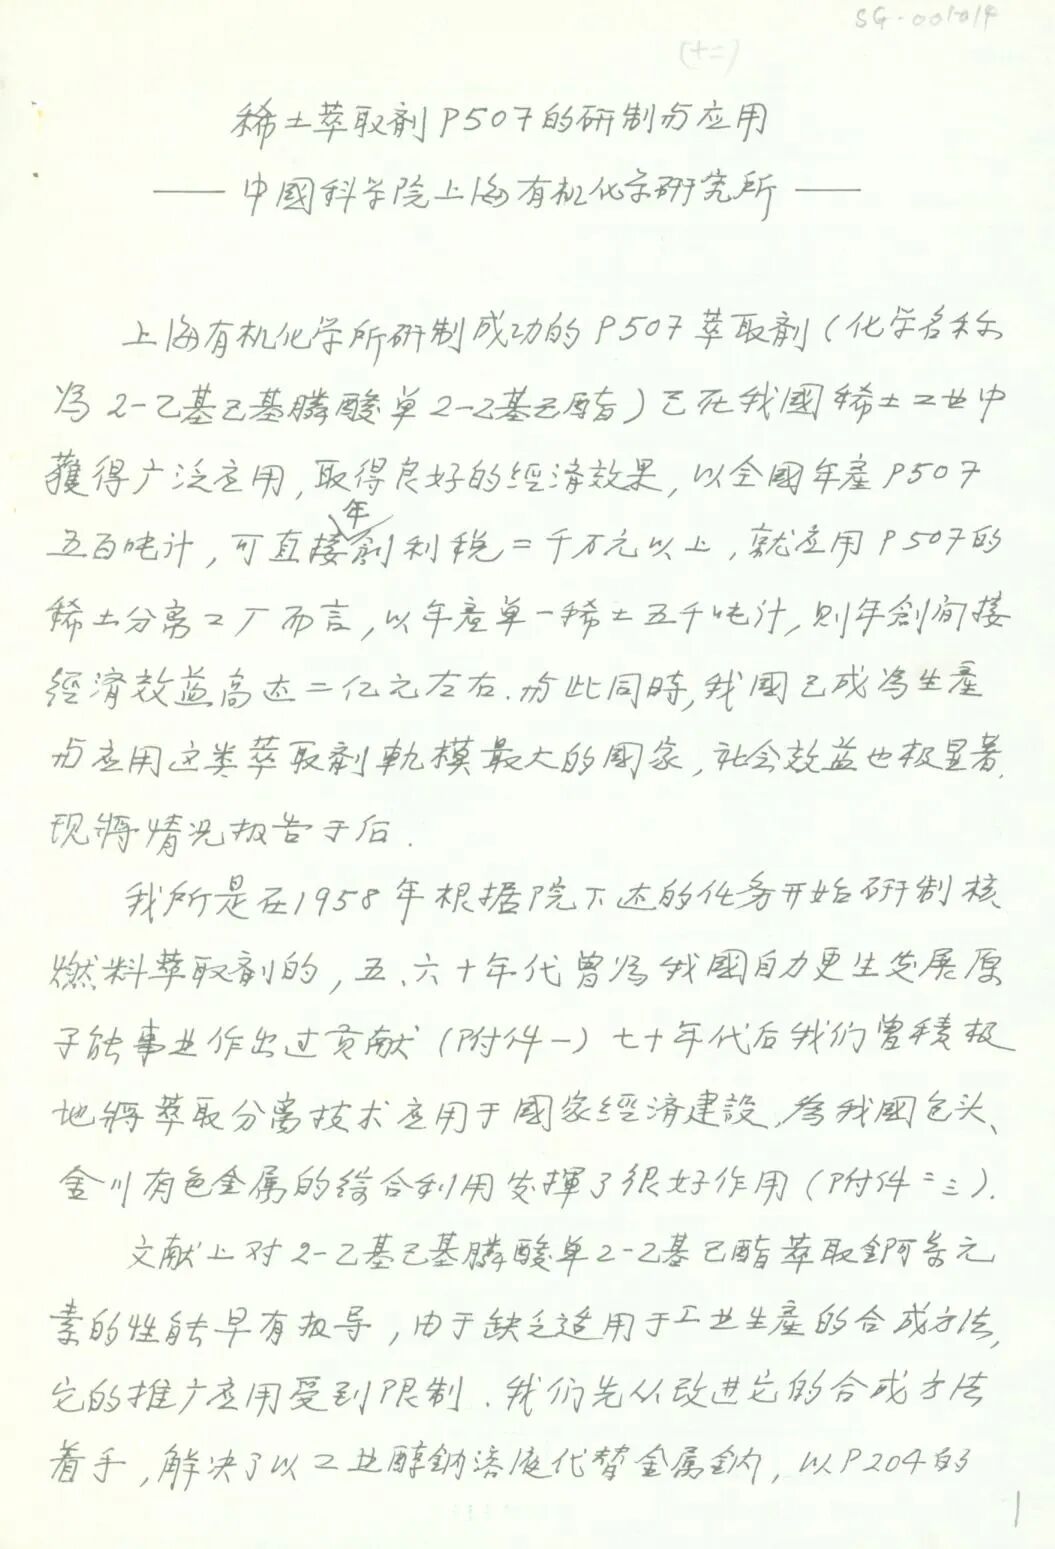 SG-001-014
(十二)
稀土萃取剂P507的研制与应用
——中國科学院上海有机化学研究所——
上海有机化学所研制成功的P507萃取剂(化学名称
为2-乙基己基膦酸单2-乙基己酯)已在我國稀土工业中
獲得广泛应用,取得良好的經済效果,以全國年產P507
五百吨计,可直接年創利税二千万元以上,就应用P507的
稀土分离工厂而言,以年產单一稀土五千吨计,则年創间接
經済效益高达二亿元左右.与此同時,我國已成为生產
与应用这类萃取剂規模最大的國家,社会效益也极显著.
现將情况报告于后.
我所是在1958年根据院下达的任务开始研制核
燃料萃取剂的,五、六十年代曾为我國自力更生发展原
子能事业作出过贡献(附件一)七十年代后我们曾積极
地將萃取分离技术应用于國家經済建設,為我國包头、
金川有色金属的综合利用发揮了很好作用(附件二三).
文献上对2-乙基己基膦酸单2-乙基己酯萃取錒系元
素的性能早有报导,由于缺乏适用于工业生產的合成方法,
它的推广应用受到限制.我们先从改进它的合成方法
着手,解决了以工业醇鈉溶液代替金属鈉,以P204的
1